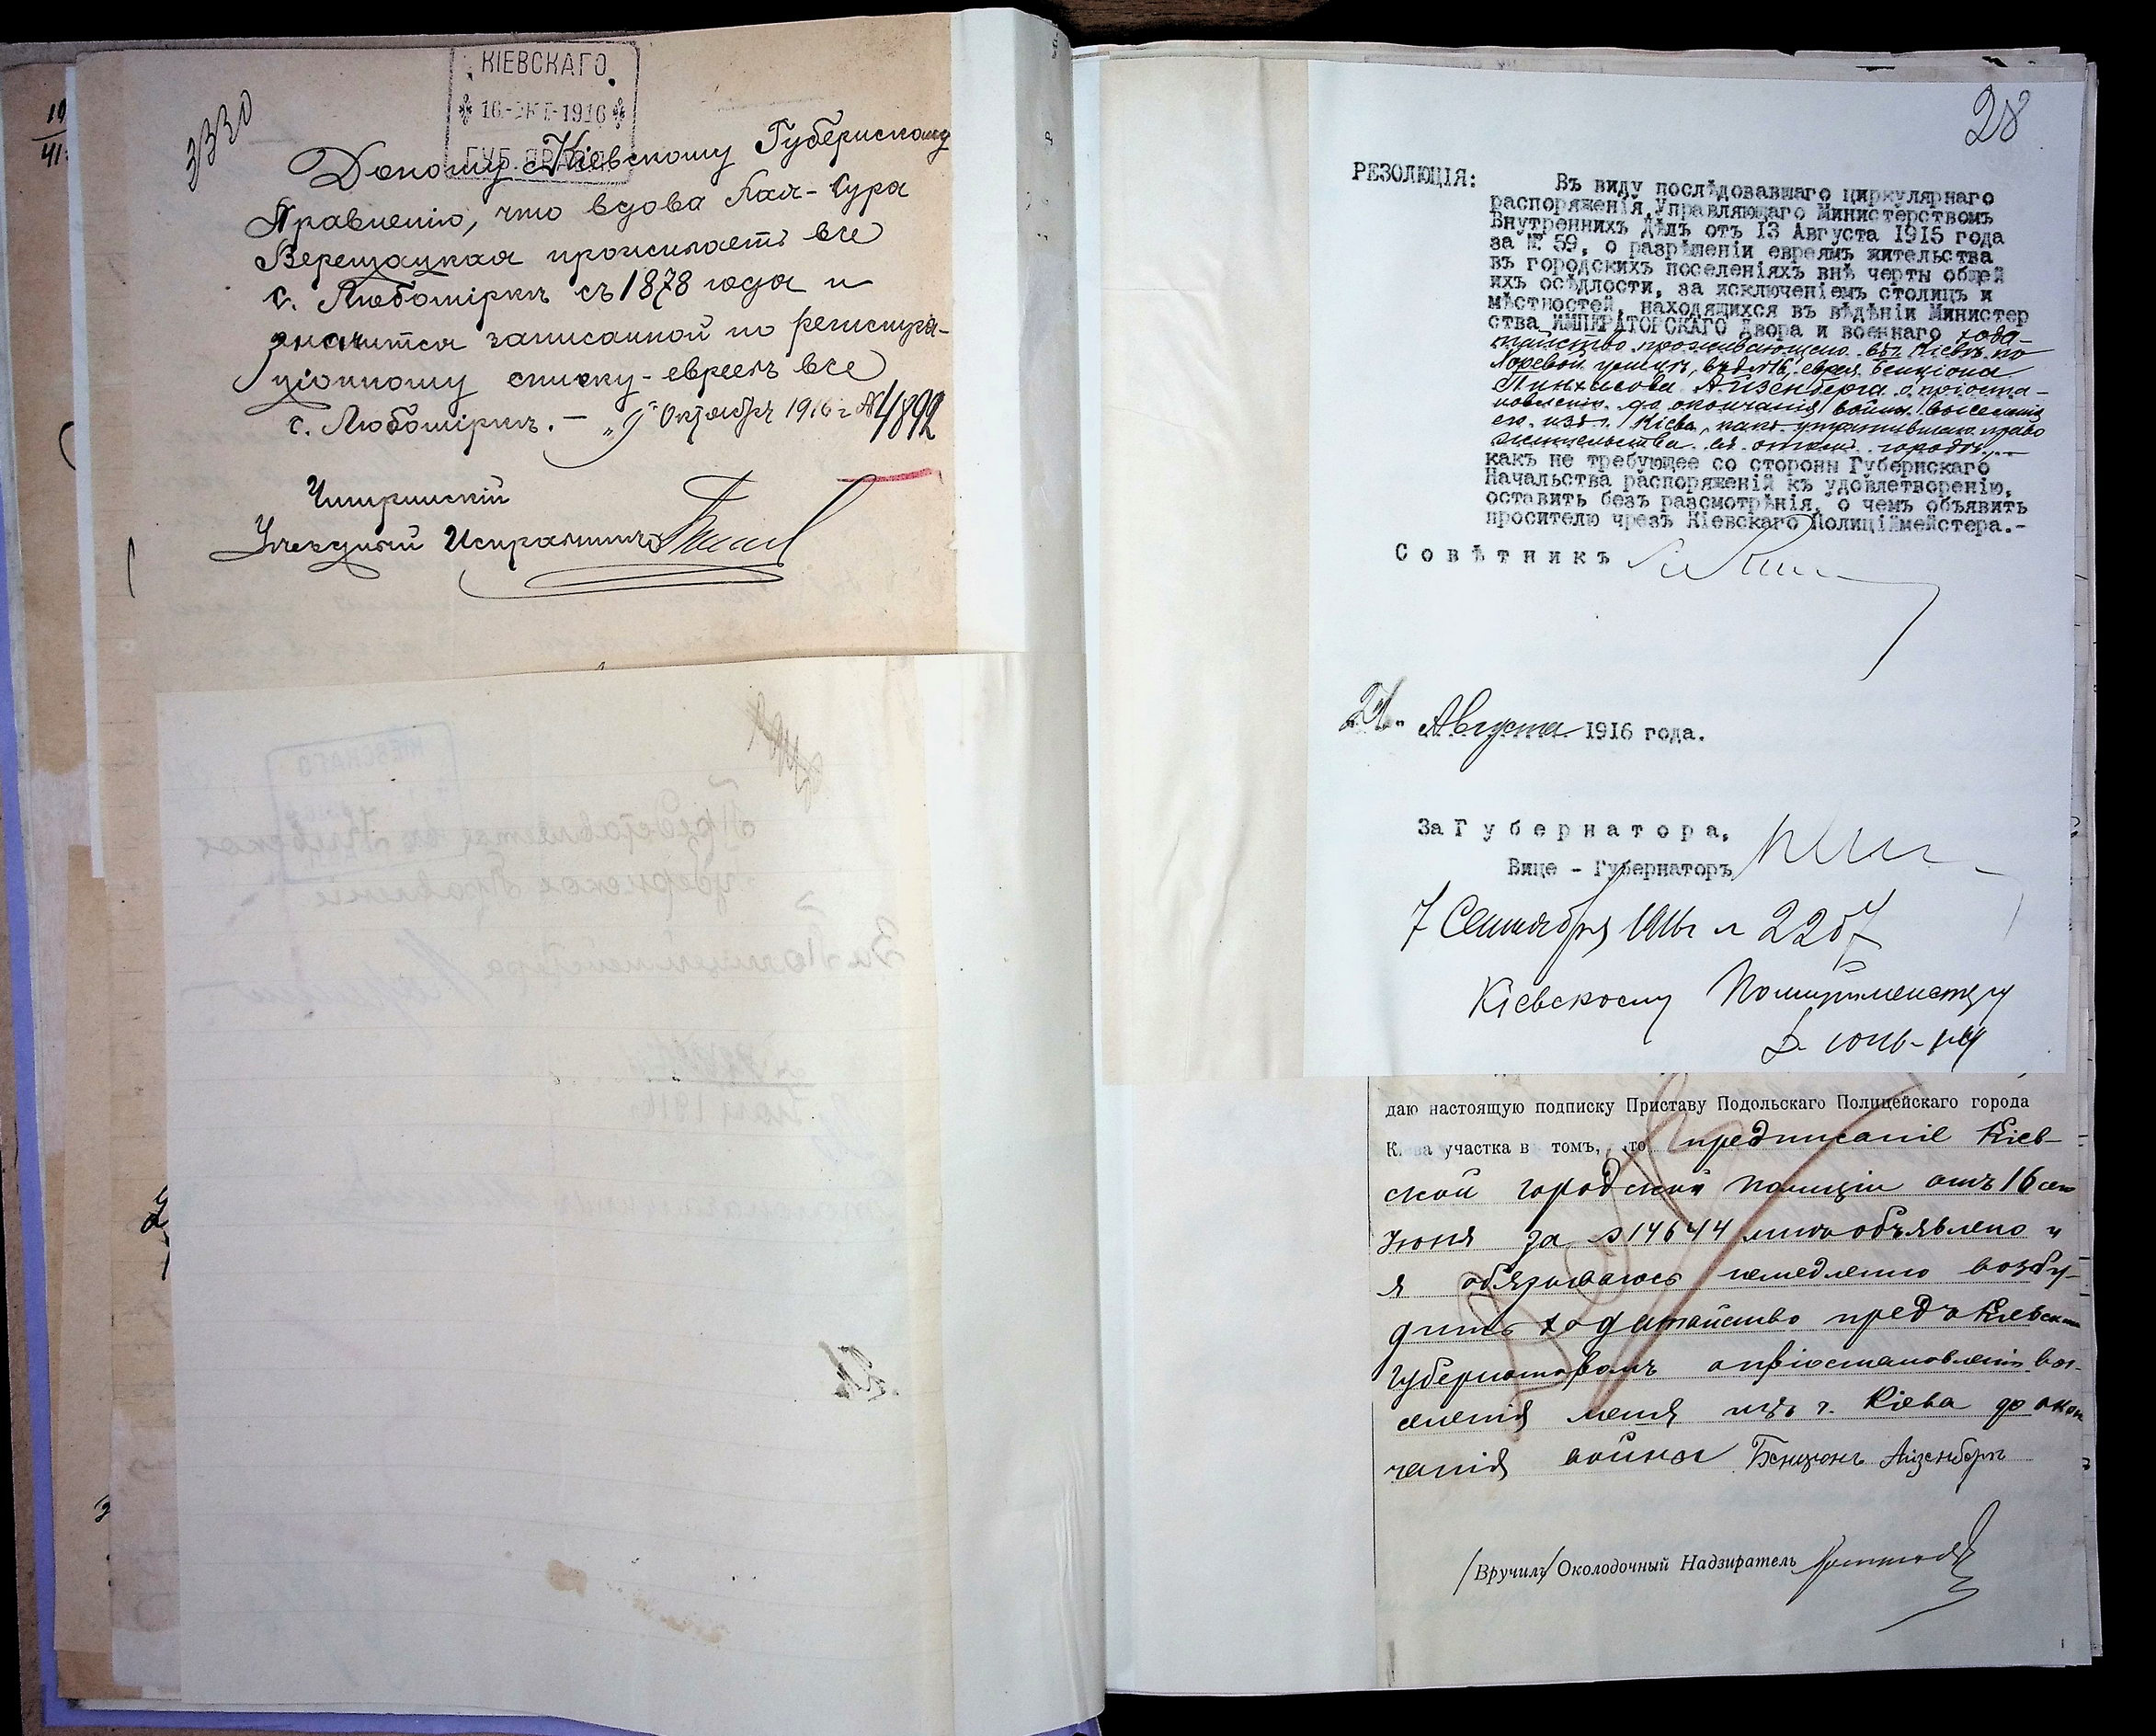 3330
КІЕВСКАГО
16-ОКТ-1916
ГУБ. ПРАВЛ
Доношу Кіевскому Губернскому
Правленію, что вдова Хая-Сура
Верещацкая проживаетъ въ
с. Любомірки съ 1878 года и
значится записанной по регистра-
ціонному списку евреевъ въ
с. Любомірки. — „9" Октября 1916 г. № 4892
Чигиринскій
Уѣздный Исправникъ
28
РЕЗОЛЮЦІЯ:
Въ виду послѣдовавшаго циркулярнаго
распоряженія Управляющаго Министерствомъ
Внутреннихъ Дѣлъ отъ 13 Августа 1915 года
за № 59, о разрѣшеніи евреямъ жительства
въ городскихъ поселеніяхъ внѣ черты общей
ихъ осѣдлости, за исключеніемъ столицъ и
мѣстностей, находящихся въ вѣдѣніи Министер
ства ИМПЕРАТОРСКАГО Двора и военнаго хода-
тайство проживающаго въ г. Кіевѣ по
Хоревой улицѣ, въ д. №16, еврея Бенціона
Айзенберга о пріоста-
новленіи до окончанія войны выселенія
его изъ г. Кіева, какъ утратившаго право
жительства въ этомъ городѣ,—
какъ не требующее со стороны Губернскаго
Начальства распоряженій къ удовлетворенію,
оставить безъ разсмотрѣнія, о чемъ объявить
просителю чрезъ Кіевскаго Полиціймейстера.-
Совѣтникъ
Августа 1916 года.
За Губернатора,
Вице - Губернаторъ
7 Сентября 1916 г № 2207
Кіевскому Полиціймейстеру
даю настоящую подписку Приставу Подольскаго Полицейскаго города
Кіева участка въ томъ, что предписаніе Кіев-
ской городской полиціи отъ 16 сего
Іюня за №14644 мнѣ объявлено и
я обязываюсь немедленно возбу-
дить ходатайство предъ Кіевским
Губернаторомъ о пріостановленіи вы-
селенія меня изъ г. Кіева до окон
чанія войны Бенціонъ Айзенбергъ
/Вручилъ/ Околодочный Надзиратель